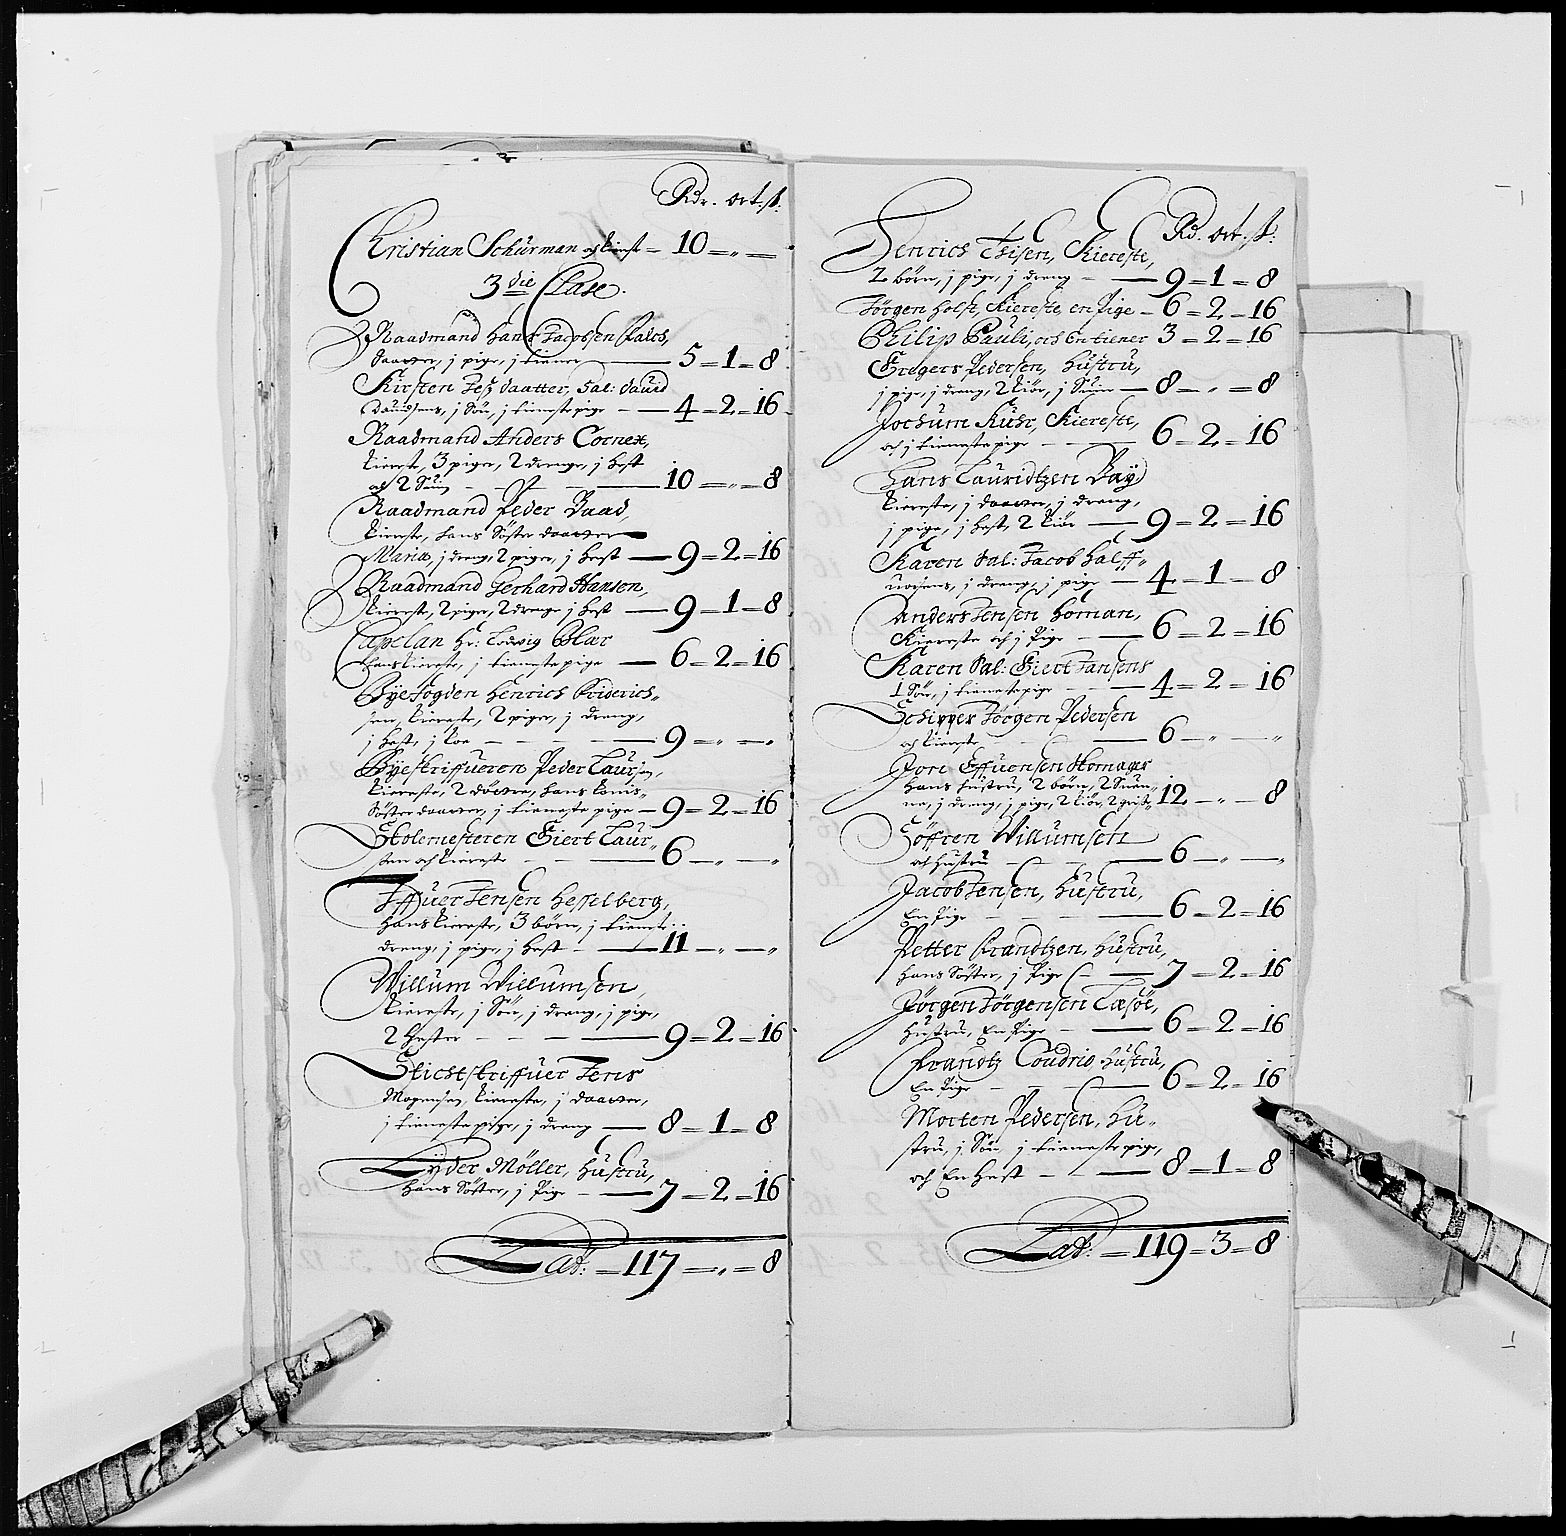 Rdr. ort. s:
Christian Schürman och kierest – 10 – „ –
3die Clase.
Raadmand Hans Jacobsen Falch,
daatter, j pige, j tiener — 5 – 1 – 8
Kirsten Jens daatter, Sal: David
Davidsens, j Sön, j tieneste pige — 4 – 2 – 16
Raadmand Anders Cornex,
kiereste, 3 piger, 2 drenge, j hest
och 2 Suin — 10 – „ – 8
Raadmand Peder Baad,
kiereste, hans Söster daatter
Maria, j dreng, 2 piger, j hest — 9 – 2 – 16
Raadmand Gerhard Hansen,
kiereste, 2 piger, 2 drenge j hest — 9 – 1 – 8
Capelan Hr: Lodvig Blar
hans kiereste, j tieneste pige — 6 – 2 – 16
Byefogden Henrich Friderich„
sen, kiereste, 2 piger, j dreng,
j hest, j koe — 9 – „ – „
Byeskriffueren Peder Laursen,
kiereste, 2 döttre, hans konis„
Söster daatter, j tieneste pige – 9 – 2 – 16
Skolemesteren Giert Laur„
sen och kiereste — 6 – „ – „
Iffuer Jensen Hesselberg,
hans kiereste, 3 börn, j tieneste
dreng, j pige, j hest — 11 – „ – „
Willum Willumsen,
kiereste, j Sön, j dreng, j pige,
2 hester — 9 – 2 – 16
Stichtskriffuer Jens
Mogensen, kiereste, j daatter,
j tieneste pige, j dreng — 8 – 1 – 8
Lyder Möller, Hustru,
hans Söster, j Pige — 7 – 2 – 16
Lat: – 117 – „ – 8
Rd. ort. s:
Henrich Thisen, Kiereste,
2 börn, j pige, j dreng — 9 – 1 – 8
Jörgen Holst, Kiereste, en Pige – 6 – 2 – 16
Philip Pauli, och En tiener 3 – 2 – 16
Gregers Pedersen, Hustru,
j pige, j dreng, 2 kiör, j Suin — 8 – „ – 8
Jochum Kuhr, Kiereste,
och j tieneste pige — 6 – 2 – 16
Hans Lauridtzen Bay
kiereste, j daatter, j dreng,
j pige, j hest, 2 kiör — 9 – 2 – 16
Karen Sal: Jacob Halff„
uorsens, j dreng, j pige — 4 – 1 – 8
Anders Jensen Homan,
Kiereste och j Pige — 6 – 2 – 16
Karen Sal: Giert Jansens
1 Sön, j tieneste pige — 4 – 2 – 16
Schipper Jörgen Pedersen
och kiereste — 6 – „ – „
Jon Effuensen Hornager
hans hustru, 2 börn, 2 Suen„
ne, j dreng, j pige, 2 kiör, 2 grise 12 – „ – 8
Söffren Willumsen
och hustru — 6 – „ – „
Jacob Jensen, Hustru,
En Pige — 6 – 2 – 16
Petter Frandtzen, Hustru,
hans Söster, j Pige — 7 – 2 – 16
Jörgen Jörgensen Læsöe,
hustru, En Pige — 6 – 2 – 16
Frandtz Coudrio, hustru,
En Pige — 6 – 2 – 16
Morten Pedersen, Hu„
stru, j Sön, j tieneste pige,
och En hest — 8 – 1 – 8
Lat: – 119 – 3 – 8